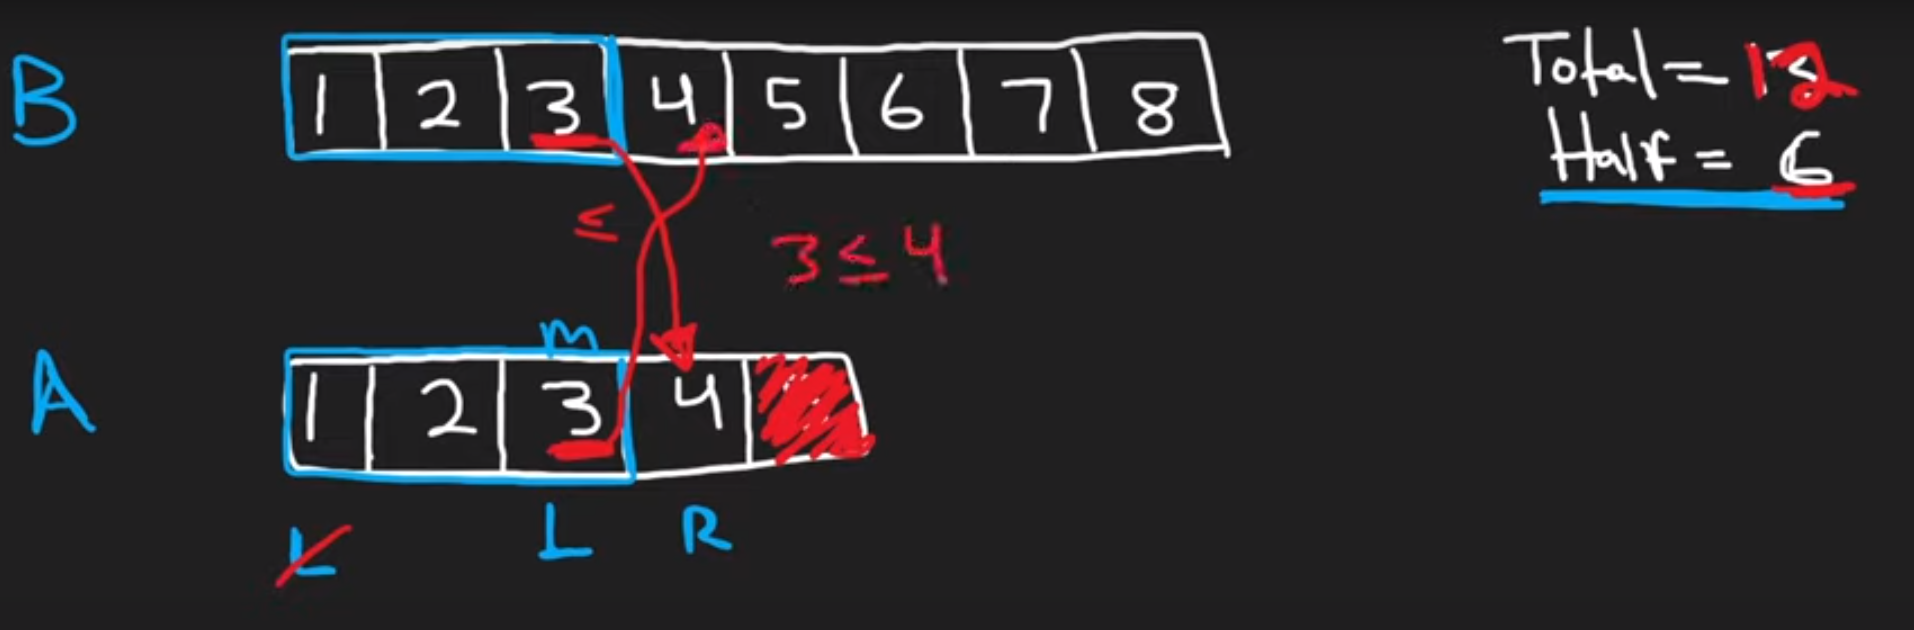 B 1 2 3 4 5 6 7 8
Total = 12
Half = 6
≤ 3 ≤ 4
m
A 1 2 3 4
L L R